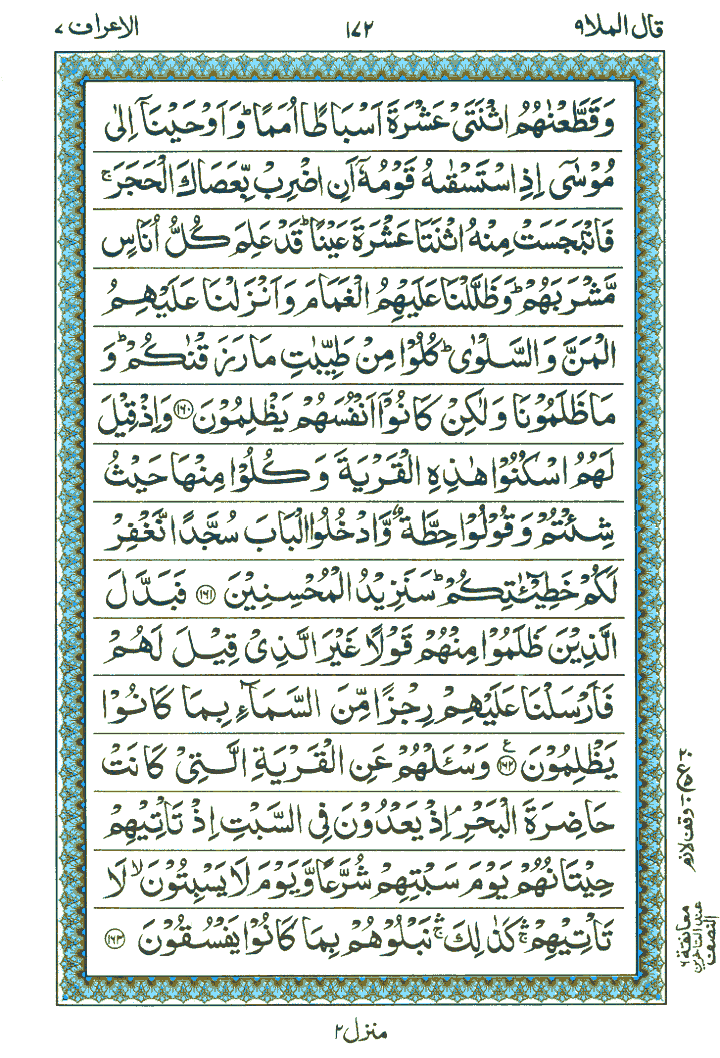 قال الملا ٩
١٧٢
الاعراف ٧
وَقَطَّعْنٰهُمُ اثْنَتَیْ عَشْرَةَ اَسْبَاطًا اُمَمًا ؕ وَ اَوْحَیْنَاۤ اِلٰی
مُوْسٰۤی اِذِ اسْتَسْقٰىهُ قَوْمُهٗۤ اَنِ اضْرِبْ بِّعَصَاكَ الْحَجَرَ ۚ
فَانْۢبَجَسَتْ مِنْهُ اثْنَتَا عَشْرَةَ عَیْنًا ؕ قَدْ عَلِمَ كُلُّ اُنَاسٍ
مَّشْرَبَهُمْ ؕ وَظَلَّلْنَا عَلَیْهِمُ الْغَمَامَ وَ اَنْزَلْنَا عَلَیْهِمُ
الْمَنَّ وَ السَّلْوٰی ؕ كُلُوْا مِنْ طَیِّبٰتِ مَا رَزَقْنٰكُمْ ؕ وَ
مَا ظَلَمُوْنَا وَ لٰكِنْ كَانُوْۤا اَنْفُسَهُمْ یَظْلِمُوْنَ ﴿۱۶۰﴾ وَ اِذْ قِیْلَ
لَهُمُ اسْكُنُوْا هٰذِهِ الْقَرْیَةَ وَ كُلُوْا مِنْهَا حَیْثُ
شِئْتُمْ وَ قُوْلُوْا حِطَّةٌ وَّ ادْخُلُوا الْبَابَ سُجَّدًا نَّغْفِرْ
لَكُمْ خَطِیْٓـٰٔتِكُمْ ؕ سَنَزِیْدُ الْمُحْسِنِیْنَ ﴿۱۶۱﴾ فَبَدَّلَ
الَّذِیْنَ ظَلَمُوْا مِنْهُمْ قَوْلًا غَیْرَ الَّذِیْ قِیْلَ لَهُمْ
فَاَرْسَلْنَا عَلَیْهِمْ رِجْزًا مِّنَ السَّمَآءِ بِمَا كَانُوْا
یَظْلِمُوْنَ ﴿۱۶۲﴾ ع وَسْـَٔلْهُمْ عَنِ الْقَرْیَةِ الَّتِیْ كَانَتْ
حَاضِرَةَ الْبَحْرِ ۘ اِذْ یَعْدُوْنَ فِی السَّبْتِ اِذْ تَاْتِیْهِمْ
حِیْتَانُهُمْ یَوْمَ سَبْتِهِمْ شُرَّعًا وَّ یَوْمَ لَا یَسْبِتُوْنَ ۙ لَا
تَاْتِیْهِمْ ۛۚ كَذٰلِكَ ۛۚ نَبْلُوْهُمْ بِمَا كَانُوْا یَفْسُقُوْنَ ﴿۱۶۳﴾
وقف لازم
معانقة ٦
عند المتاخرين
النصف
منزل ٢